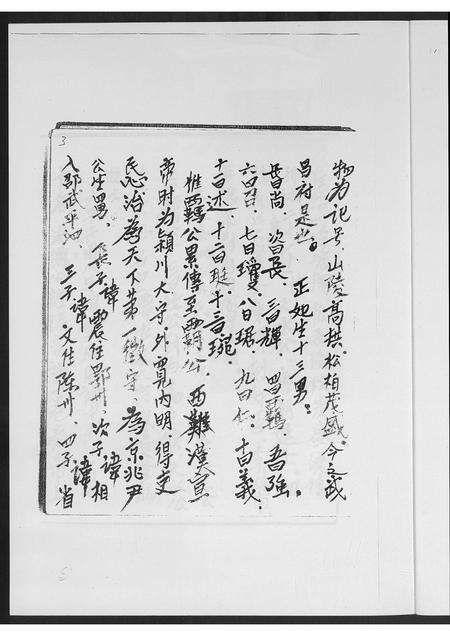 3
物为记号、山陵高拱、松柏茂盛、今之武
昌府是也。 正妣生十三男：
長曰尚、次曰長、三曰輝、四曰霸、五曰強、
六曰召、七曰瓊、八曰琚、九曰仁、十曰義、
十一曰述、十二曰珽、十三曰琬、
惟霸公累傳至霸公 西漢宣
帝时为颍川太守外寬内明、得吏
民心治為天下第一徵守、為京兆尹
公生四男、長子諱霞任鄂州、次子諱相
入邵武平洒 三子諱文任陳州、四子諱省